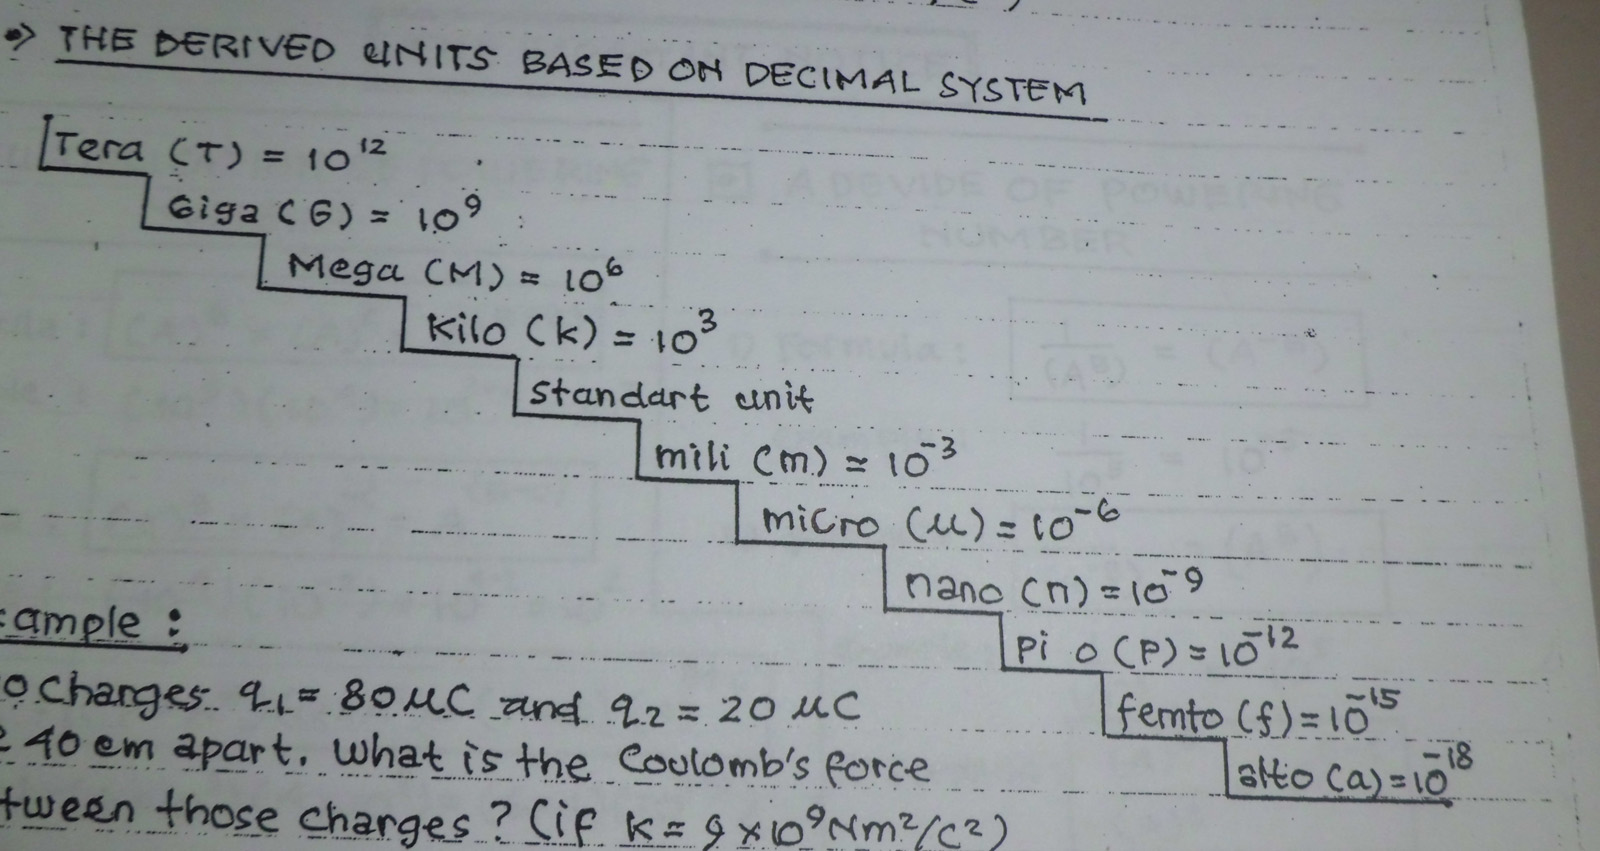 ⇒ THE DERIVED UNITS BASED ON DECIMAL SYSTEM
Tera (T) = 10¹²
Giga (G) = 10⁹
Mega (M) = 10⁶
Kilo (k) = 10³
standart unit
mili (m) = 10⁻³
micro (μ) = 10⁻⁶
nano (n) = 10⁻⁹
pi o (p) = 10⁻¹²
femto (f) = 10⁻¹⁵
atto (a) = 10⁻¹⁸
ample :
o charges q₁ = 80 μC and q₂ = 20 μC
40 cm apart. What is the Coulomb's force
tween those charges? (if k = 9 x 10⁹ Nm²/C²)